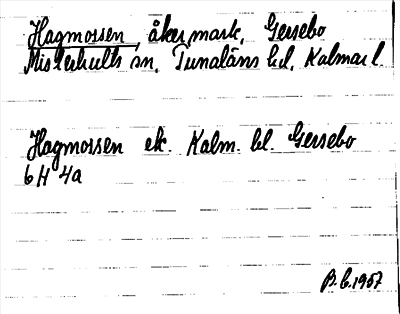 Hagmossen, åkermark, Gersebo
Misterhults sn, Tunaläns hd, Kalmar l.
Hagmossen ek. Kalm. bl. Gersebo
6H 4a
B.C. 1957